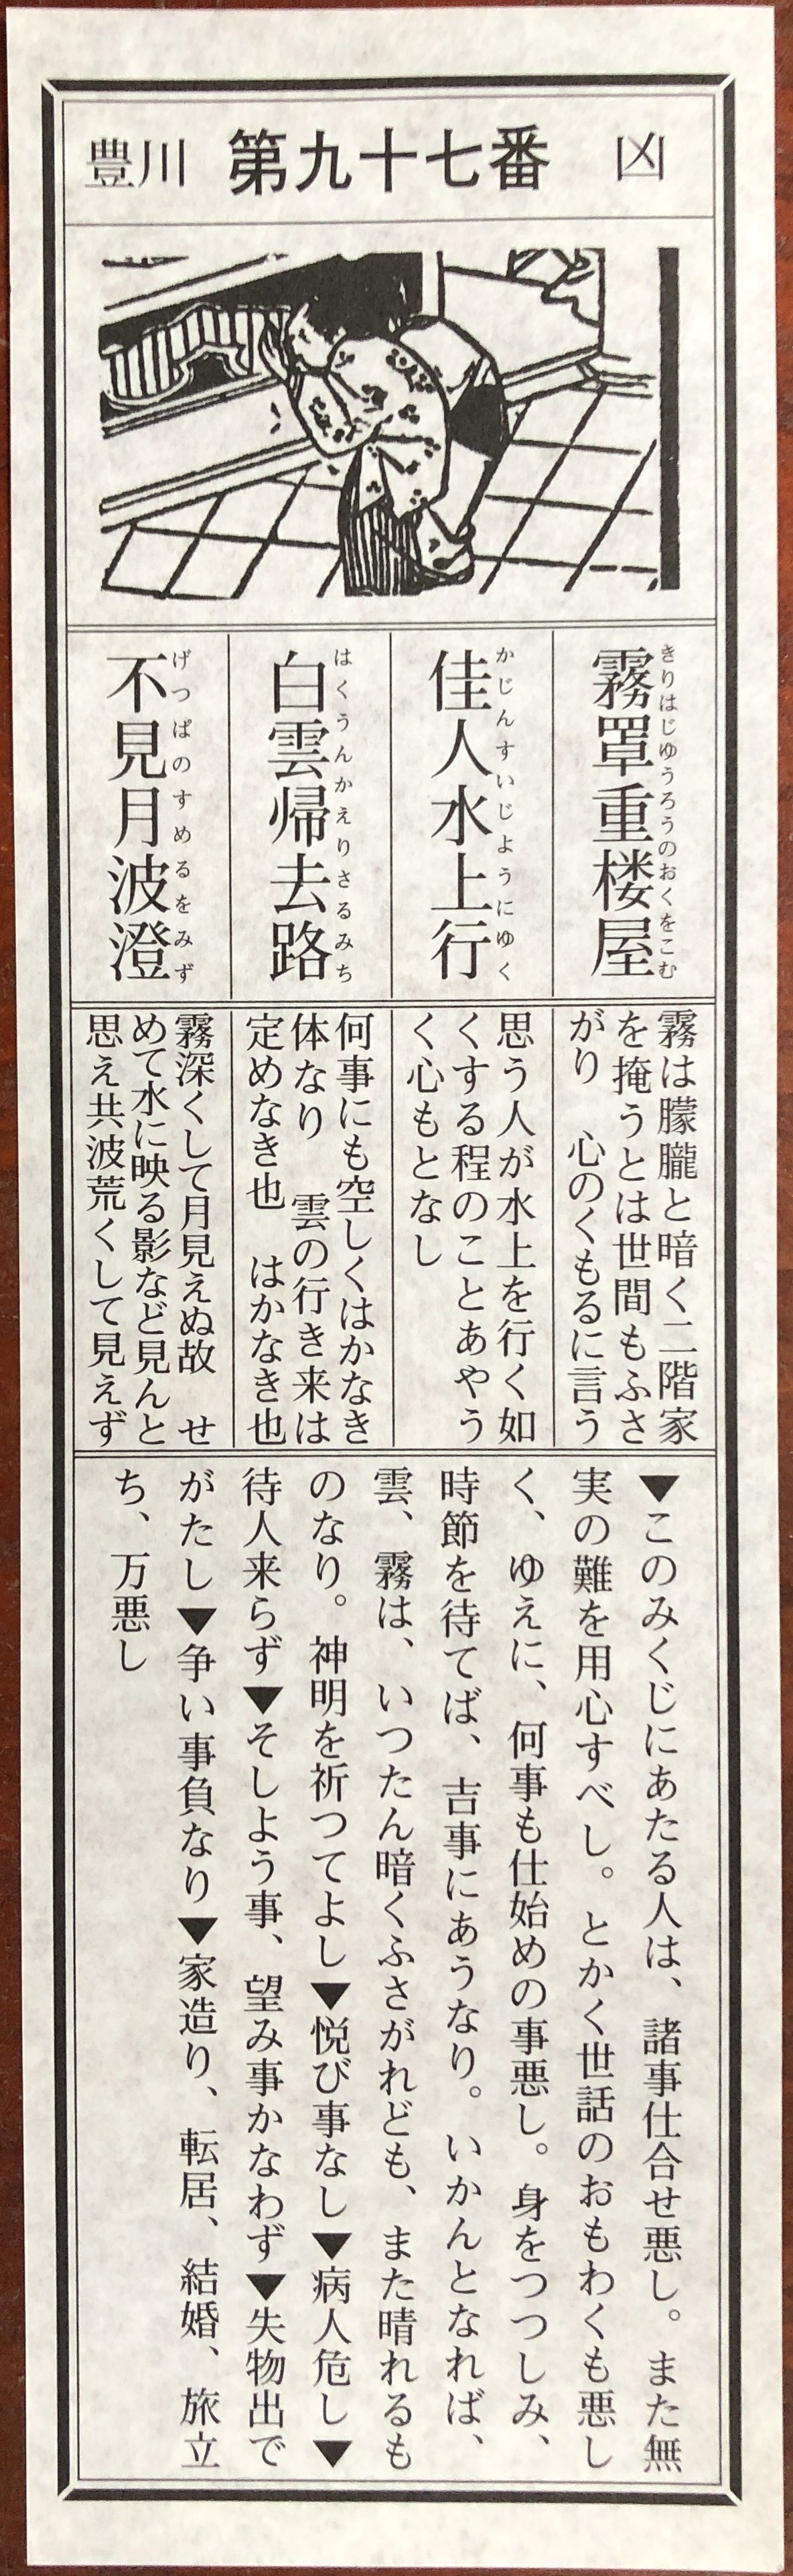 豊川 第九十七番 凶
霧罩重楼屋
きりはじゆうろうのおくをこむ
佳人水上行
かじんすいじようにゆく
白雲帰去路
はくうんかえりさるみち
不見月波澄
げつぱのすめるをみず
霧は朦朧と暗く二階家
を掩うとは世間もふさ
がり 心のくもるに言う
思う人が水上を行く如
くする程のことあやう
く心もとなし
何事にも空しくはかなき
体なり 雲の行き来は
定めなき也 はかなき也
霧深くして月見えぬ故 せ
めて水に映る影など見んと
思え共波荒くして見えず
▼このみくじにあたる人は、諸事仕合せ悪し。また無
実の難を用心すべし。とかく世話のおもわくも悪し
く、ゆえに、何事も仕始めの事悪し。身をつつしみ、
時節を待てば、吉事にあうなり。いかんとなれば、
雲、霧は、いつたん暗くふさがれども、また晴れるも
のなり。神明を祈つてよし▼悦び事なし▼病人危し▼
待人来らず▼そしよう事、望み事かなわず▼失物出で
がたし▼争い事負なり▼家造り、転居、結婚、旅立
ち、万悪し